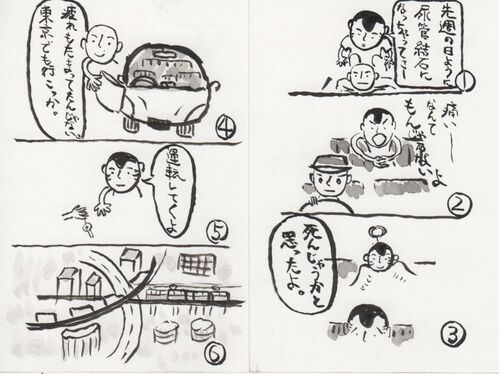 先週の日よう
尿管結石に
なっちゃってさー
①
痛いー
なんて
もんじゃないよ
②
死んじゃうかと
思ったよ。
③
疲れもたまってたんじゃない。
東京でも行こっか。
④
運転してくよ
⑤
⑥